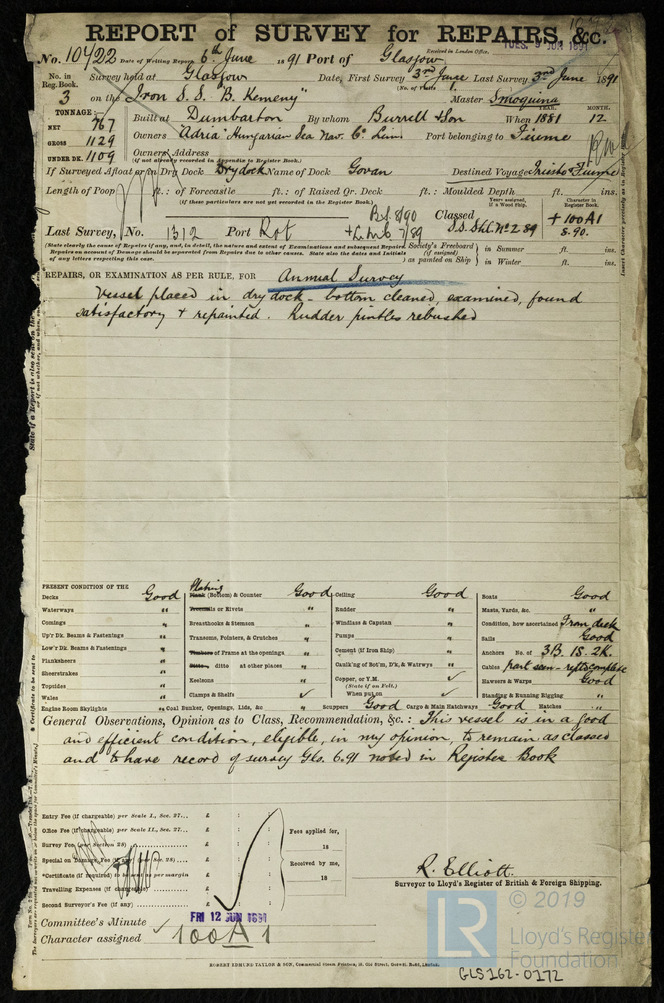 REPORT of SURVEY for REPAIRS, &c.
No. 10422 Date of Writing Report 6th June 1891 Port of Glasgow Received in London Office. TUES. 9 JUN 1891
No. in Reg. Book. Survey held at Glasgow Date, First Survey 3rd June Last Survey 3rd June 1891
(No. of Visits 1.
3 on the Iron S.S. "B. Kemeny" Master Smoquina
TONNAGE: YEAR. MONTH.
NET 767 Built at Dumbarton By whom Burrell & Son When 1881 12
GROSS 1129 Owners Adria Hungarian Sea Nav. Co Lim Port belonging to Fiume
UNDER DK. 1109 Owners' Address
(if not already recorded in Appendix to Register Book.)
If Surveyed Afloat or in Dry Dock Drydock Name of Dock Govan Destined Voyage Trieste & Fiume
Length of Poop ft.: of Forecastle ft.: of Raised Qr. Deck ft.: Moulded Depth ft. ins.
(If these particulars are not yet recorded in the Register Book.) Years assigned, if a Wood Ship. Character in Register Book.
Last Survey, No. 1312 Port Rot BS 8/90 + LMC 7/89 Classed S.S. Gls. No. 2 89 + 100A1 8.90.
(State clearly the cause of Repairs if any, and, in detail, the nature and extent of Examinations and subsequent Repairs. Repairs on account of Damage should be separated from Repairs due to other causes. State also the dates and Initials of any letters respecting this case.
Society's Freeboard (if assigned) as painted on Ship } in Summer ft. ins.
in Winter ft. ins.
REPAIRS, OR EXAMINATION AS PER RULE, FOR Annual Survey
Vessel placed in dry dock - bottom cleaned, examined, found
satisfactory & repainted. Rudder pintles rebushed
PRESENT CONDITION OF THE
Decks Good
Waterways "
Comings "
Up'r Dk. Beams & Fastenings "
Low'r Dk. Beams & Fastenings "
Planksheers "
Sheerstrakes "
Topsides "
Wales "
Engine Room Skylights "
Plating
Plank (Bottom) & Counter Good
Treenails or Rivets "
Breasthooks & Stemson
Transoms, Pointers, & Crutches
Timbers of Frame at the openings
Ditto ditto at other places
Keelsons
Clamps & Shelfs
Coal Bunker, Openings, Lids, &c "
Ceiling Good
Rudder "
Windlass & Capstan "
Pumps "
Cement (if Iron Ship) "
Caulk'ng of Bot'm, D'k, & Watrwys "
Copper, or Y.M.
(State if on Felt.)
When put on
Scuppers Good Cargo & Main Hatchways Good Hatches "
Boats Good
Masts, Yards, &c. "
Condition, how ascertained From deck
Sails Good
Anchors No. of 3B. 1S. 2K.
Cables part seen - reptd complete
Hawsers & Warps Good
Standing & Running Rigging "
General Observations, Opinion as to Class, Recommendation, &c.: This vessel is in a good
and efficient condition, eligible, in my opinion, to remain as classed
and to have record of survey Gls. 6.91 noted in Register Book
Entry Fee (if chargeable) per Scale I., Sec. 27... £ : :
Office Fee (if chargeable) per Scale II., Sec. 27... £ : :
Survey Fee (per Section 28) £ : :
Special or Damage Fee (if any) (per Sec. 28) £ : :
*Certificate (if required) to be sent as per margin £ : :
Travelling Expenses (if chargeable) £ : :
Second Surveyor's Fee (if any) £ : :
Fees applied for, 18
Received by me, 18
R. Elliott
Surveyor to Lloyd's Register of British & Foreign Shipping.
Committee's Minute FRI 12 JUN 1891
Character assigned 100A1
ROBERT EDMUND TAYLOR & SON, Commercial Steam Printers, 19, Old Street, Goswell Road, London.
© 2019
LR
Lloyd's Register
Foundation
GLS162-0172